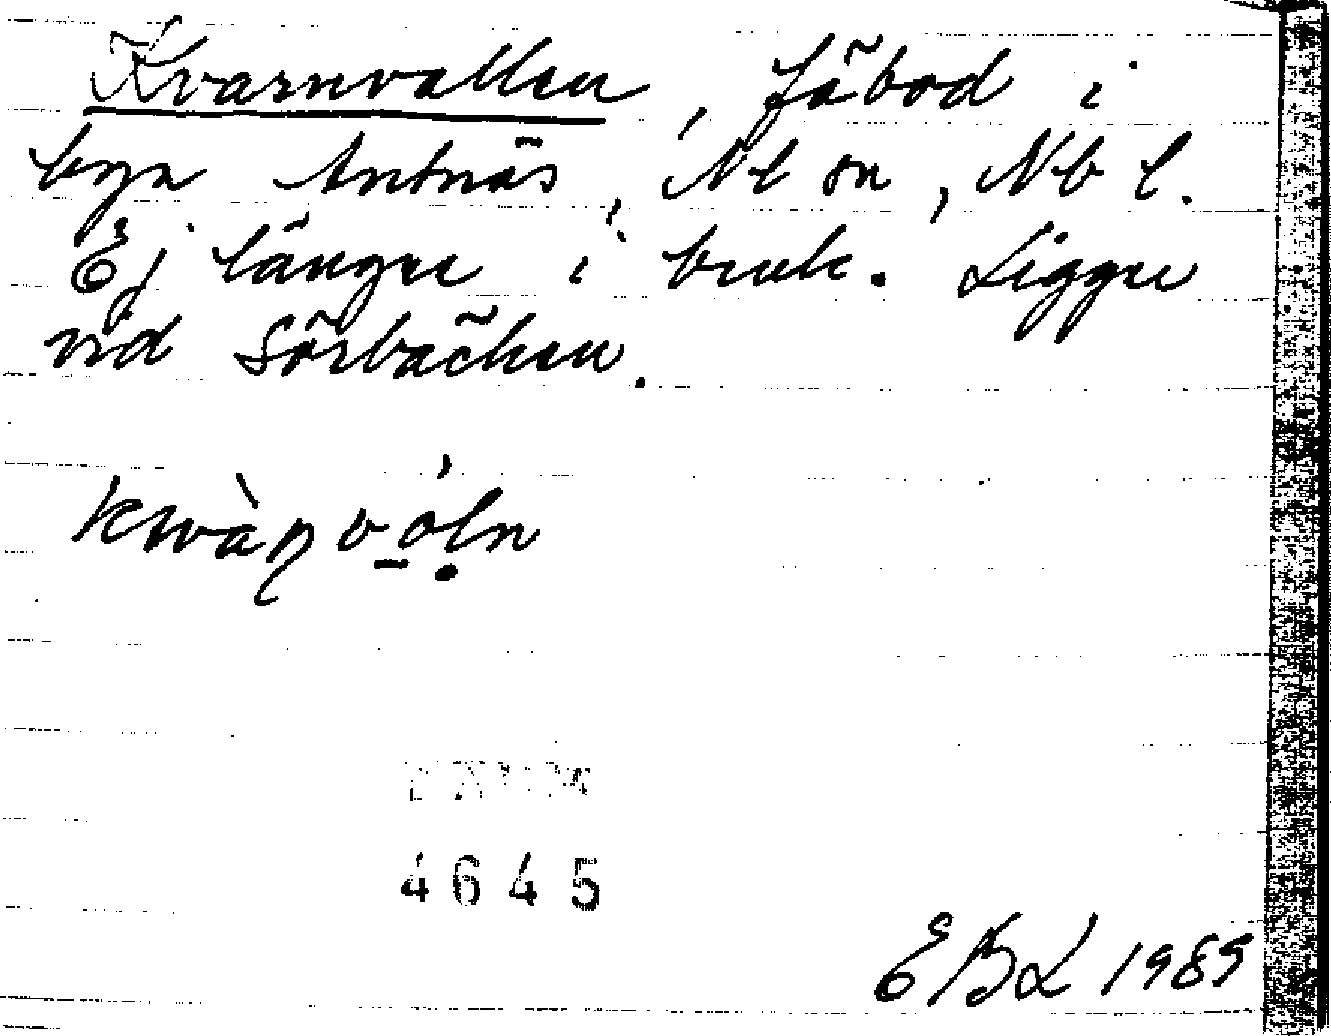 Kvarnvallen, fäbod i
byn Antnäs, Nl sn, Nb l.
Ej längre i bruk. Ligger
vid Sörbäcken.
kwàɳvóln
DAUM
4645
EBL 1989